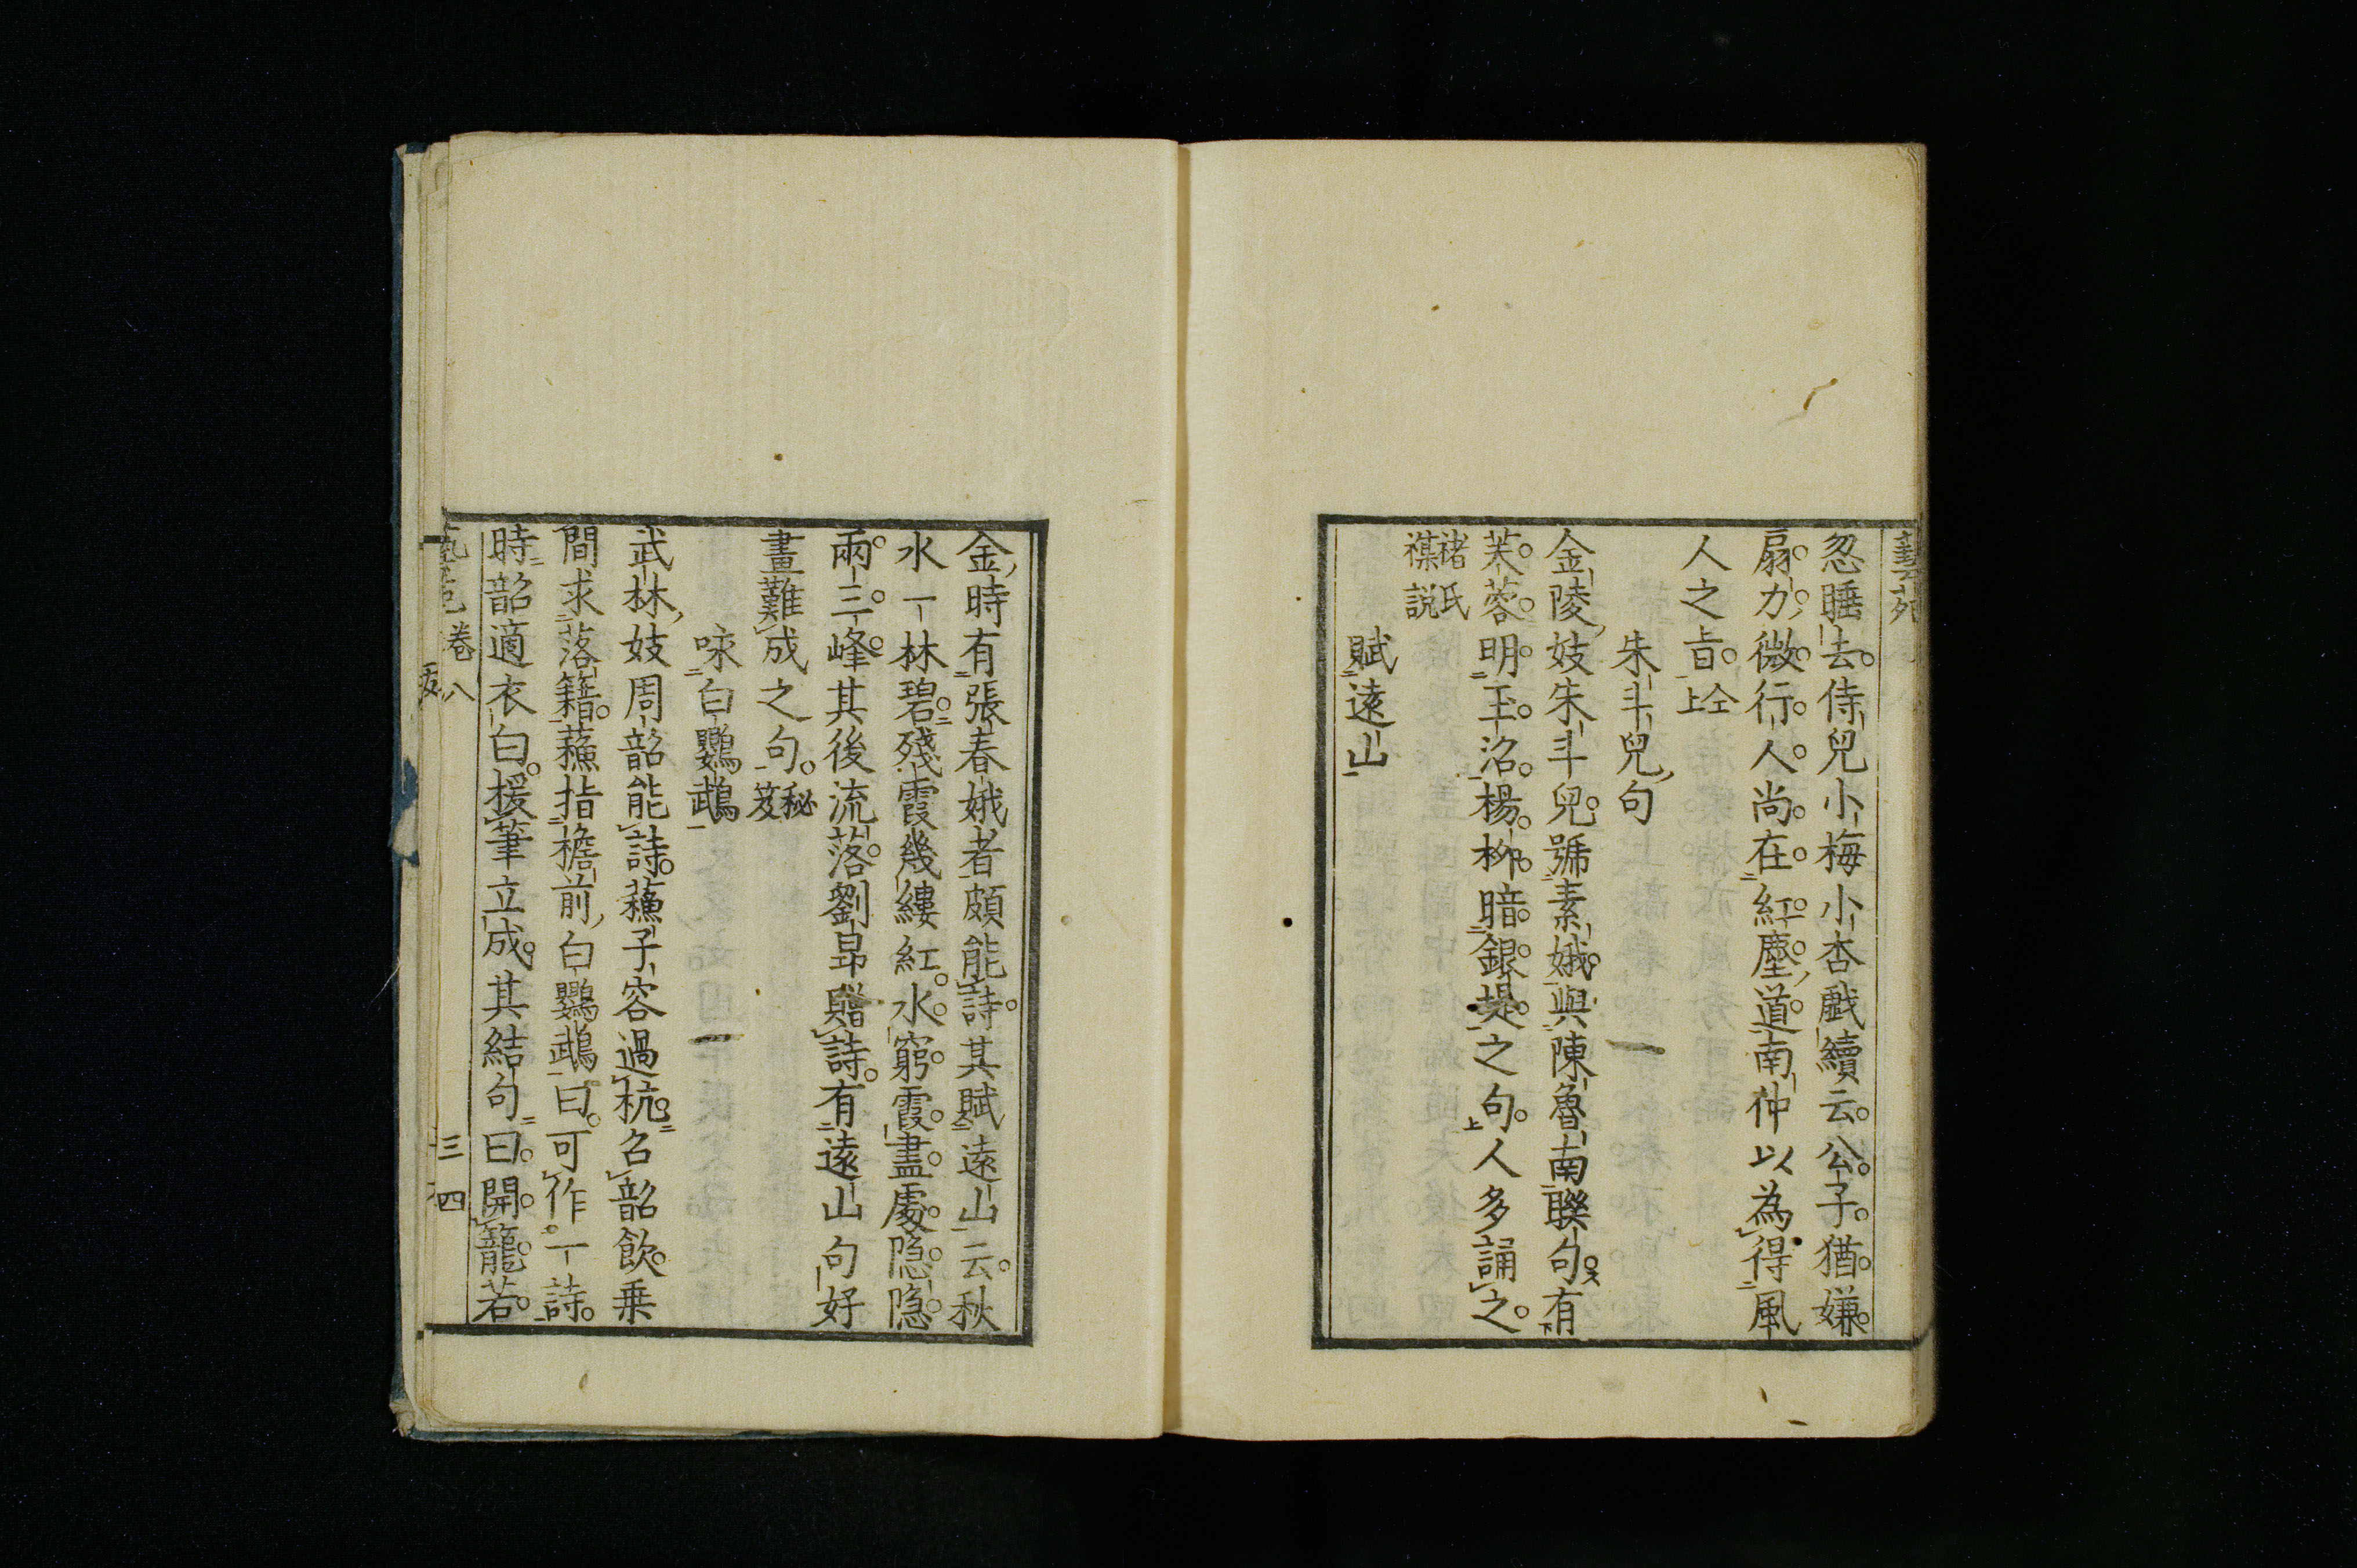 忽睡去。侍兒小梅小杏戲續云。公子。猶嫌。
扇。力。微。行。人。尚。在。紅。塵。道。南仲以為得風
人之旨。仝上
朱斗兒句
金陵妓朱斗兒。號素娥。與陳魯南聯句。有
芙。蓉。明。玉。沼。楊。柳。暗。銀。堤。之句。人多誦之。
褚氏
禩説
賦遠山
金時有張春娥者頗能詩。其賦遠山云。秋
水一林碧。殘霞幾縷紅。水。窮。霞。盡。處。隐。隐。
兩。三。峰。其後流落。劉昻贈詩。有遠山句好
畫難成之句。秘笈
咏白鸚鵡
武林妓周韶能詩。蘓子容過杭。名韶飲。乗
間求落籍。蘓指檐前白鸚鵡曰。可作一詩。
時韶適衣白。援筆立成。其結句曰。開。籠。若。
卷八
三四